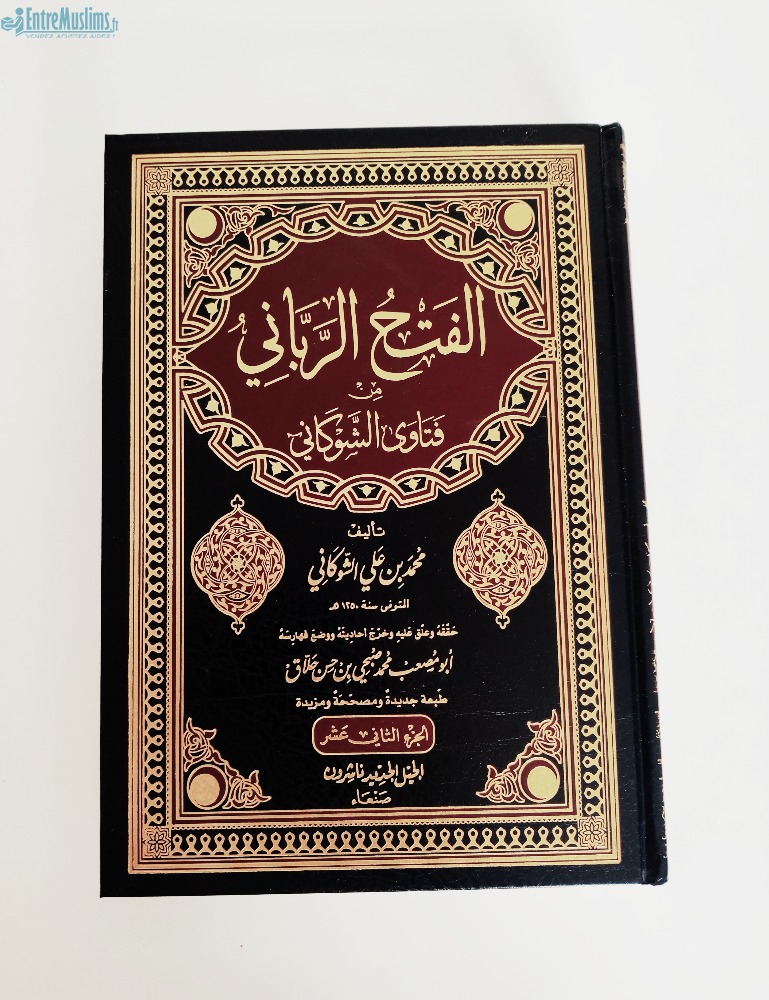 EntreMuslims.fr
VENDEZ ACHETEZ AIDEZ !
الفَتْحُ الرَّبَّانِيُ
مِن
فَتَاوَى الشَّوْكَانِي
تأليف
مُحَمَّد بِن عَلي الشَّوكَانِي
المتوفى سنة ١٢٥٠ هـ
حَقَّقَهُ وعَلّق عَليه وخَرّج أحَاديثَهُ ووضعَ فهارسَهُ
أبو مُصعَب مُحمَّد صُبْحِي بن حسَن حَلّاق
طبعة جديدةٌ ومصحّحَةٌ ومزيدة
الجزء الثاني عَشر
الجيل الجديد ناشرون
صَنعَاء